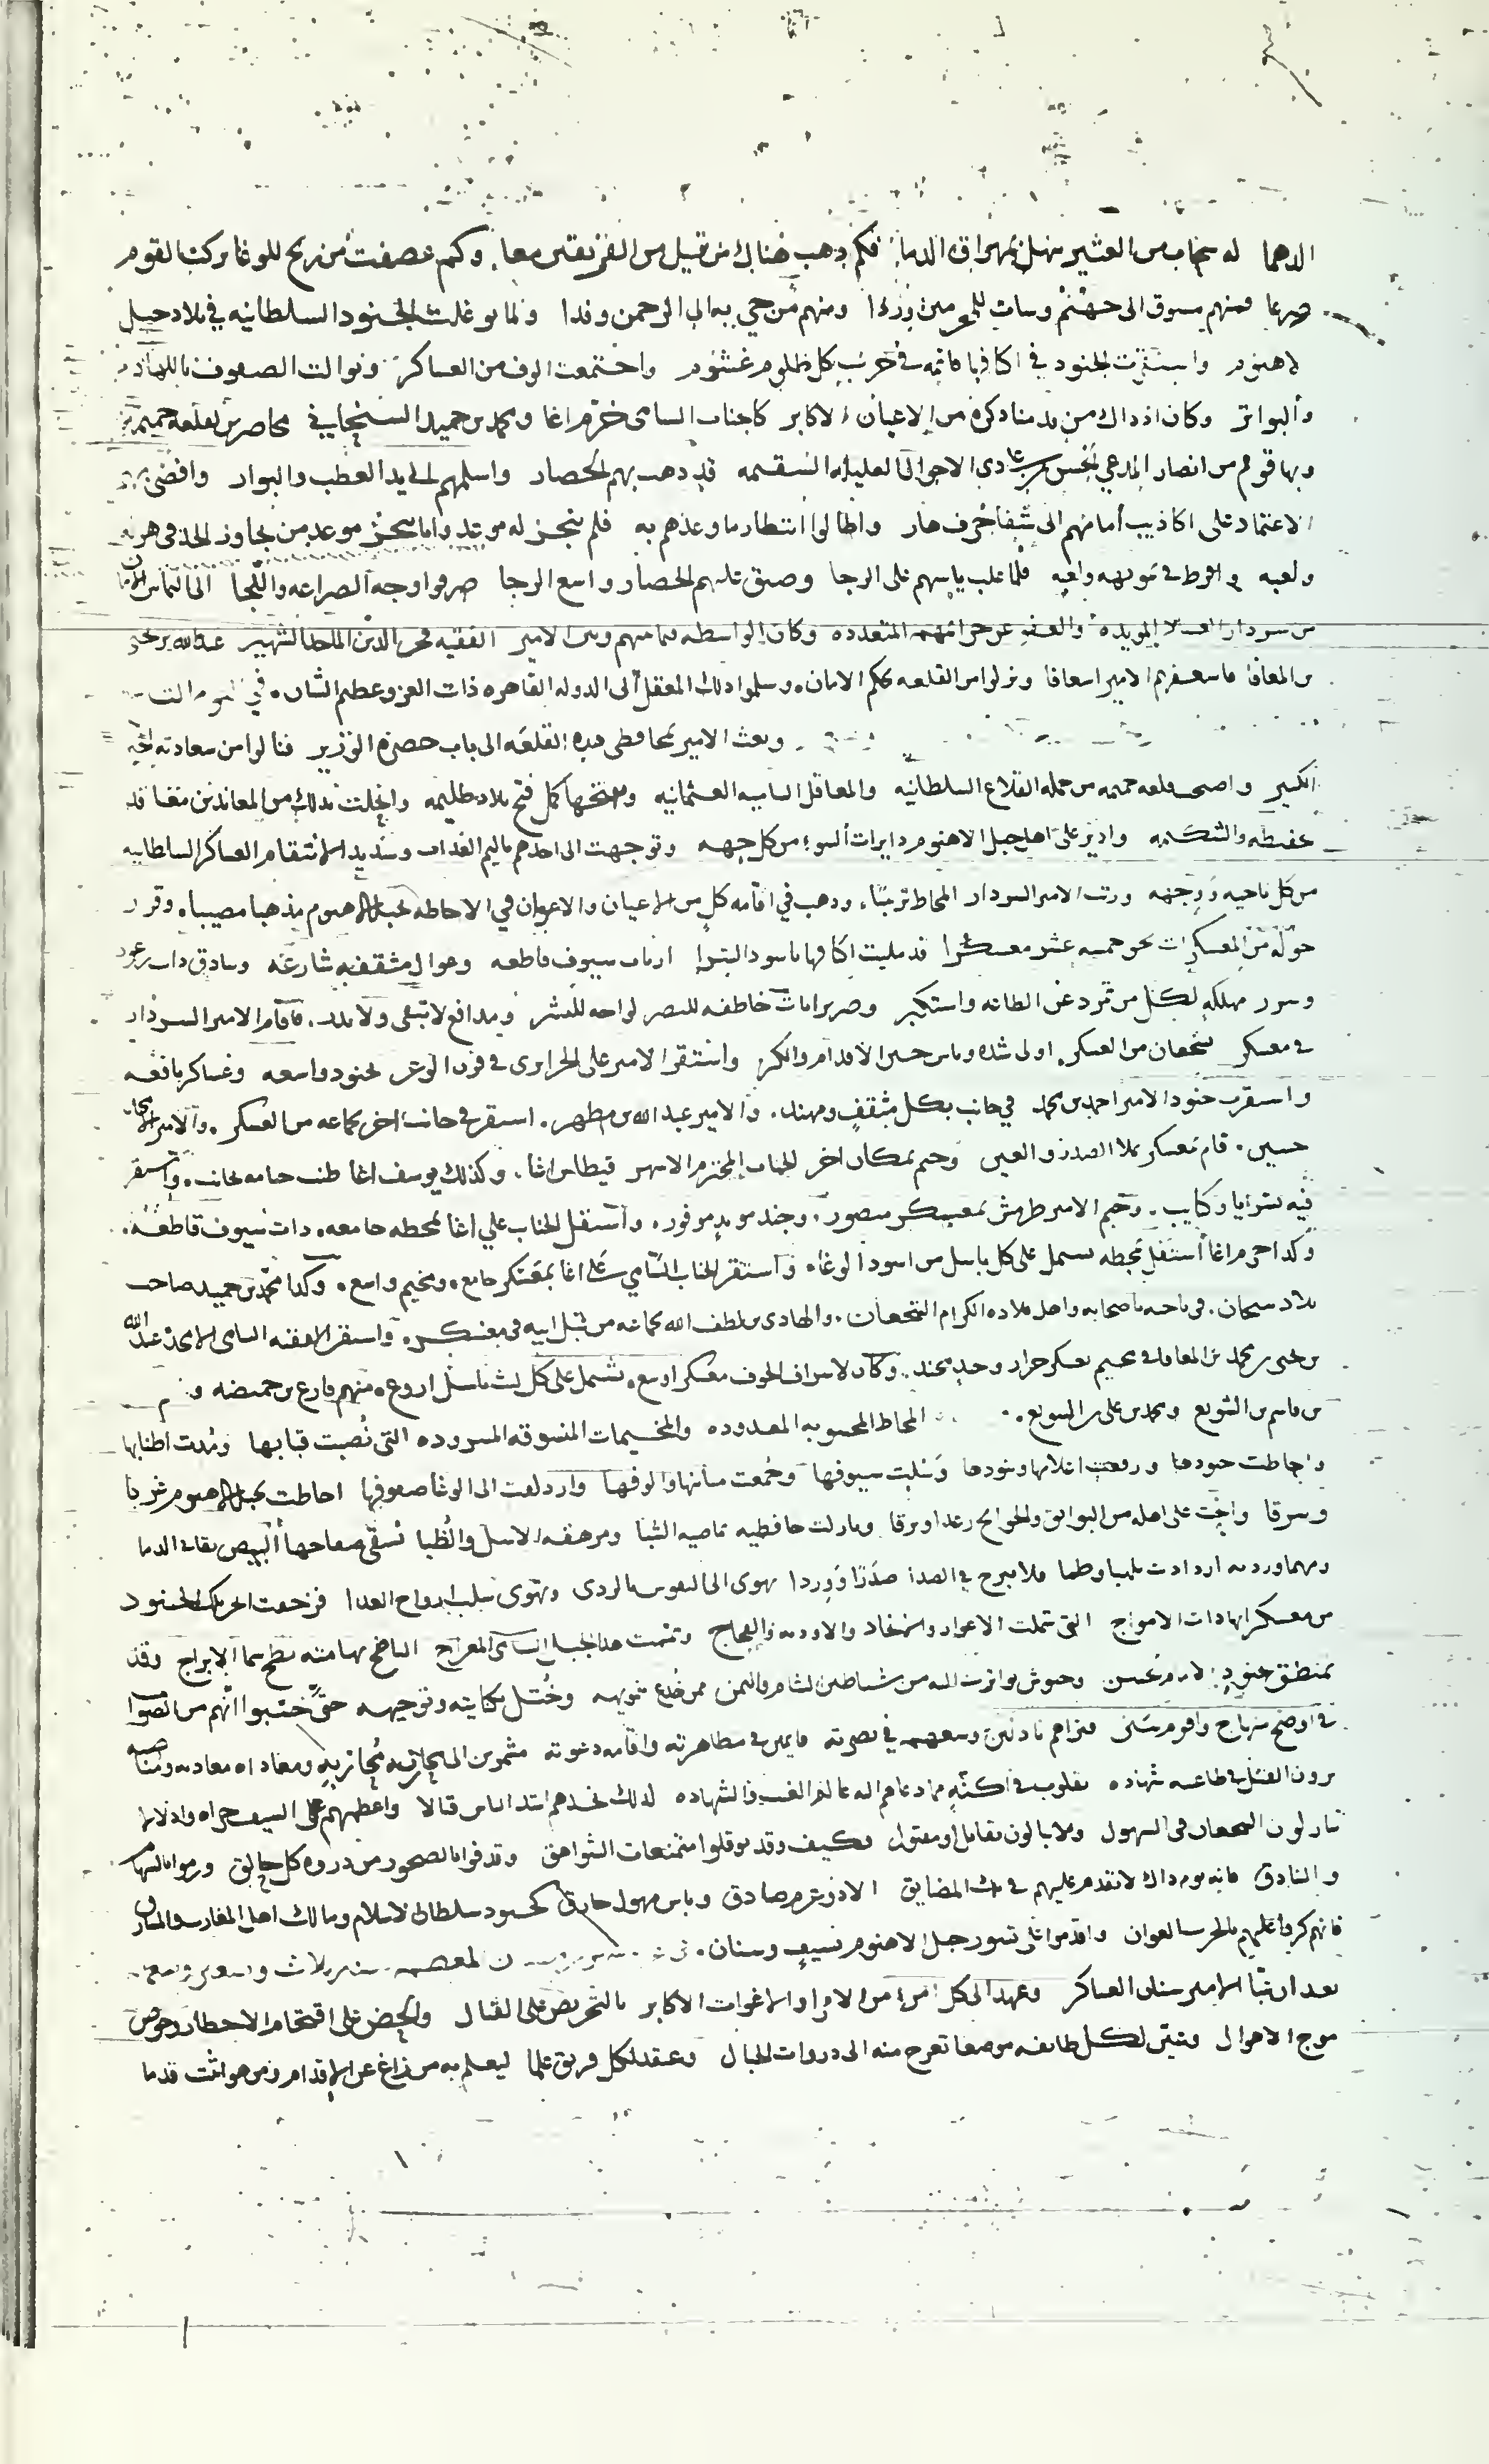 الدهما له سحاب من العثير منهل بمهراق الدما فكم ذهب هنالك من قتيل من الفريقين معا وكم عصفت من ريح للوغا تركت القوم
صرعا فمنهم مسوق الى جهنم وسات للمجرمين وردا ومنهم من جي به الى الرحمن وفدا ولما توغلت الجنود السلطانيه في بلاد جبل
لاهنوم وانتشرت الجنود في اكنافها قايمه في حرب كل ظلوم غشوم واجتمعت الوف من العساكر وتوالت الصفوف باللهاذم
والبواتر وكان اذ ذاك من قدمنا ذكره من الاعيان الاكابر كاجناب السامي خرم اغا ومحمد بن حميد السنحاني في محاصرين لقلعه حميمه
وبها قوم من انصار المدعي الحسن بن علي ذي الاحوال العليله السقيمه قد ذهب بهم الحصار واسلمهم الى يد العطب والبوار وافضى بهم
الاعتماد على اكاذيب امانيهم الى شفا جرف هار واطالوا انتظار ما وعدهم به فلم ينجز له موعد وانا ينجز موعد من تجاوز الحد في هزله
ولعبه وافرط في تمويهه فلما غلب ياسهم على الرجا وضيق عليهم الحصار واسع الرجا صرفوا وجه الضراعه واللجا الى التماس الامان
من سردار العساكر المويده والعفو عن جرايمهم المتعدده وكان الواسطه فيما بينهم وبين الامير الفقيه فخر الدين الشهير عبد الله بن يحيى
بن المعافا فاسعفهم الامير اسعافا ونزلوا من القلعه بحكم الامان وسلموا ذلك المعقل الى الدوله القاهره ذات العز وعظيم الشان في
وبعث الامير بمحافظي هذه القلعه الى باب حضرة الوزير فنالوا من سعادته
الكبير واصبحت قلعه حميمه من جمله القلاع السلطانيه والمعاقل الساميه العثمانيه وبفتحها كمل فتح بلاد ظليمه وانجلت بذلك من المعاندين
وادير على اهل جبل الاهنوم دايرات السوء من كل جهه وتوجهت الى اخذهم باليم العذاب وشديد الانتقام العساكر السلطانيه
من كل ناحيه ووجهه ورتب الامير السردار المحاط ترتيبا وذهب في اقامه كل من الاعيان والاعوان في الاحاطه بجبل الاهنوم مذهبا مصيبا وقرر
حوله من المعسكرات نحو خمسه عشر معسكرا قد مليت اكنافها باسود الشرا ارباب سيوف قاطعه وعوال مثقفه شارعه وبنادق ذات رعود
وبروق مهلكه لكل من تمرد عن الطاعه واستكبر وضربزانات خاطفه للبصر لواحه للبشر ومدافع لا تبقي ولا تذر فاقام الامير السردار
في معسكر شجعان من العسكر اولى شده وباس حسن الاقدام والكر واستقر الامير على الجزايري في قرن الوعر بجنود واسعه وعساكر نافعه
واستقرت جنود الامير احمد بن محمد في جانب بكل مثقف ومهند والامير عبد الله بن مطهر استقر في جانب اخر بجماعه من العسكر والامير
حسين قام بمعسكر يملا الصدر والعين وخيم بمكان اخر الجناب المحترم الاسهر قيطاس اغا وكذلك يوسف اغا طنب خيامه بجانب واستقر
فيه بسرايا وكتايب وخيم الامير طرمش بمعسكر منصور وجند مويد موفور واستقل الجناب علي اغا بمحطه جامعه ذات سيوف قاطعه
وكذا خرم اغا استقل بمحطه تشمل على كل باسل من اسود الوغا واستقر الجناب السامي علي اغا بمعسكر جامع ومخيم واسع وكذا محمد بن حميد صاحب
بلاد سنحان في ناحيه باصحابه واهل بلاده الكرام الشجعان والهادي بن لطف الله بجماعه من قبل ابيه في معسكره واستقر الفقيه السامي عبد الله
بن يحيى بن محمد بن المعافا في مخيم بعسكر جرار وجند مجند وكان لاشراف الجوف معسكر اوسع تشمل على كل ليث باسل اروع منهم
بن قاسم بن الشويع ومحمد بن علي بن الشويع المحاط المحسوبه المعدوده والمخيمات المنسوقه المسروده التي نصبت قبابها ومدت اطنابها
واحاطت جنودها ورفعت اعلامها وبنودها وسلت سيوفها وجمعت ميأتها والوفها وازدلفت الى الوغا صفوفها احاطت بجبل الاهنوم غربا
وشرقا واجت على اهله من البوايق والجوايح رعدا وبرقا ومازلت ماضيه الشبا ومرهفه الاسل والظبا تسقي صفاحها البيض بقاني الدما
ومهما وردت ازدادت تلهبا وظما فلا تبرح في الصدا صدرا ووردا تهوى الى النفوس بالردى وتهوى سلب ارواح العدا فزحفت الى الجنود
من معسكراتها ذات الامواج التي شملت الاغوار والانجاد والاوديه والفجاج وتسنمت هذا الجبل السامي المعراج الناطح بهامته نطح سما الابراج وقد
تمنطق بجنود الامام حسن وجيوش تواترت اليه من شياطين الشام واليمن ممن خدع بتمويهه وختل بكتابته وتوجيهه حتى حسبوا انهم من الصواب
في اوضح منهاج واقوم سنن فتراهم باذلين وسعهم في نصرته قايمين في مظاهرته واقامه دعوته مشمرين الى محاربه محاربه ومعاداه معاديه
يرون القتل في طاعته شهاده بقلوب في اكنه مما دعاهم اليه عالم الغيب والشهاده لذلك تجدهم اشد الناس قتالا واعظمهم على السيف جراه واذلالا
ينازلون الشجعان في السهول ولا يبالون بقاتل او مقتول فكيف وقد توقلوا ممتنعات الشواهق وقد قرنوا بالصخور من ذروه كل حالق ورموا بالسهام
والبنادق فانه يوم ذاك لا تقدم عليهم في تلك المضايق الا ذو عزم صادق وباس مهول خارق كجنود سلطان الاسلام ومالك اهل المغارب والمشارق
فانهم كروا عليهم بالحرب العوان واقدموا على تسور جبل الاهنوم بسيف وسنان
بعد ان عبا الامير سنان العساكر وعهد الى كل امرء من الامرا والاغوات الاكابر بالتحريض على القتال والحض على اقتحام الاخطار وخوض
موج الاهوال وعين لكل طايفه موضعا تعرج منه الى ذروات الجبال وعقد لكل فريق علما ليعلم به من زاغ عن الاقدام ومن هو اثبت قدما